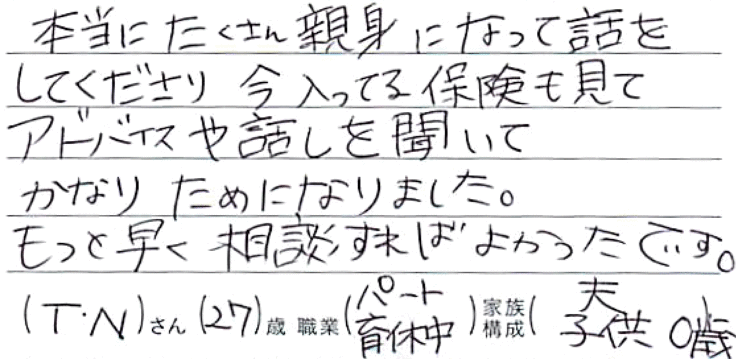 本当に たくさん 親身 になって話を
してくださり 今入ってる保険も見て
アドバイスや話しを聞いて
かなり ためになりました。
もっと早く 相談すれば よかったです。
(T.N)さん (27)歳 職業(パート 育休中)家族構成( 夫 子供 0歳)